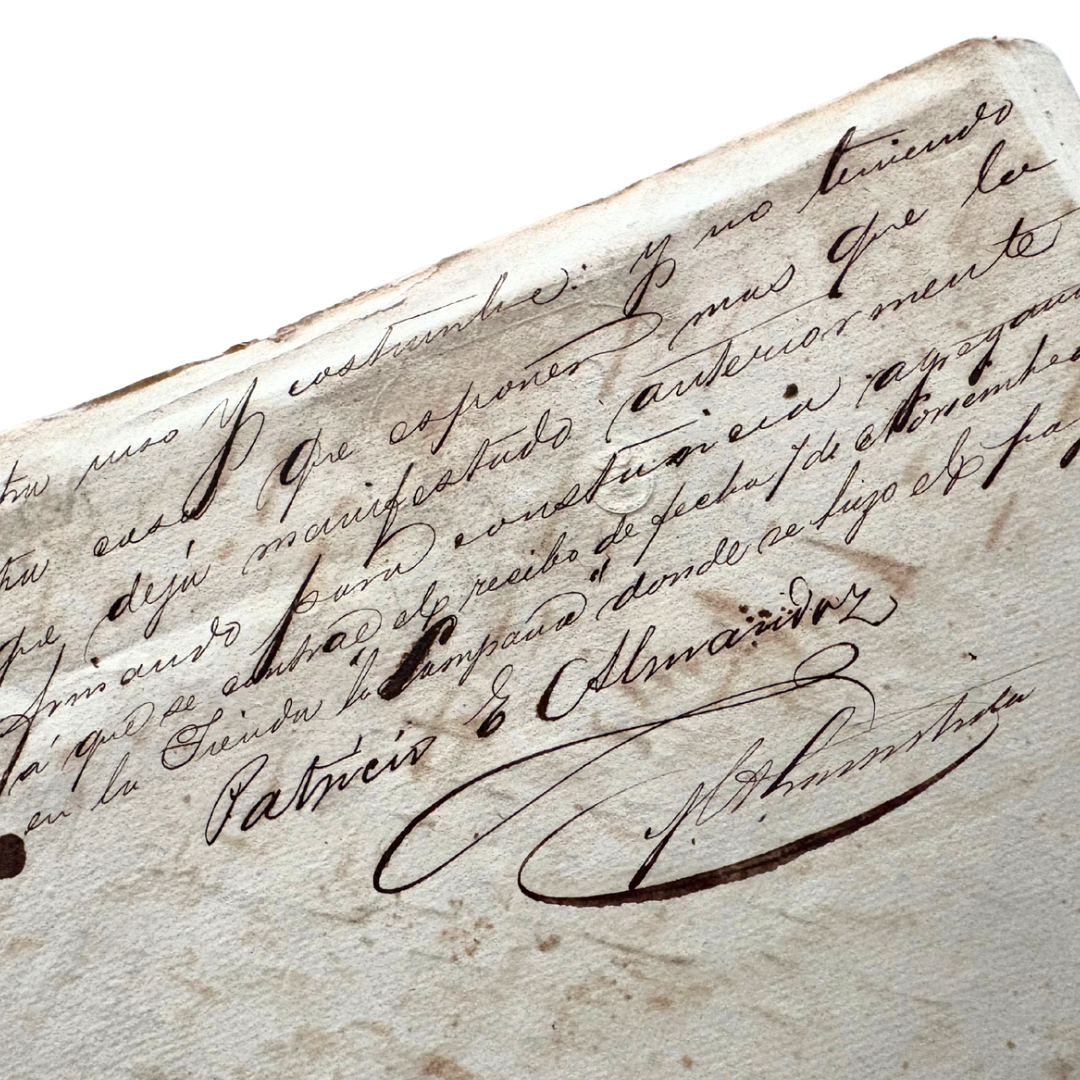 tra uso y costumbre: y no teniendo
tra cosa que esponer mas que lo
que dejú manifestado anteriormente
firmando para constancia agregan
á que se contrae el recibo de fecha 7 de Noviembre
en la Tienda la Campana" donde se hizo el pa
Patricio E Almandoz